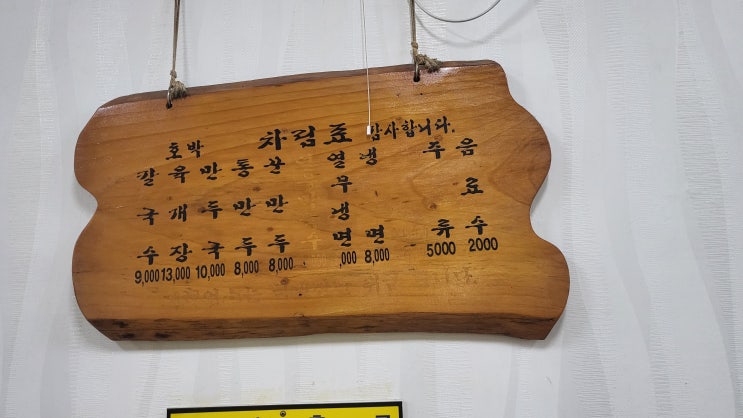 차림표 감사합니다.
호박
칼국수
9,000
육개장
13,000
만두국
10,000
통만두
8,000
만두
8,000
열무냉면
,000
냉면
8,000
주류
5000
음료수
2000